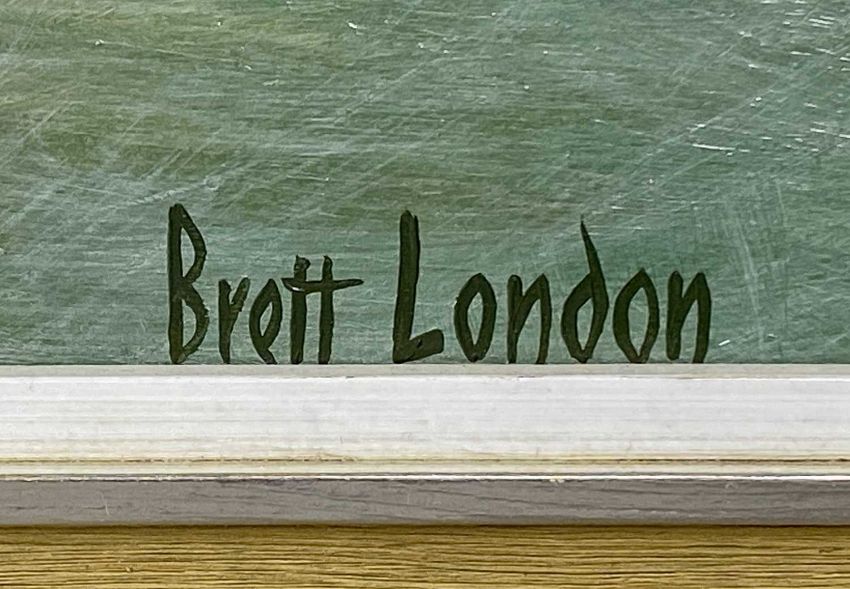 Brett London